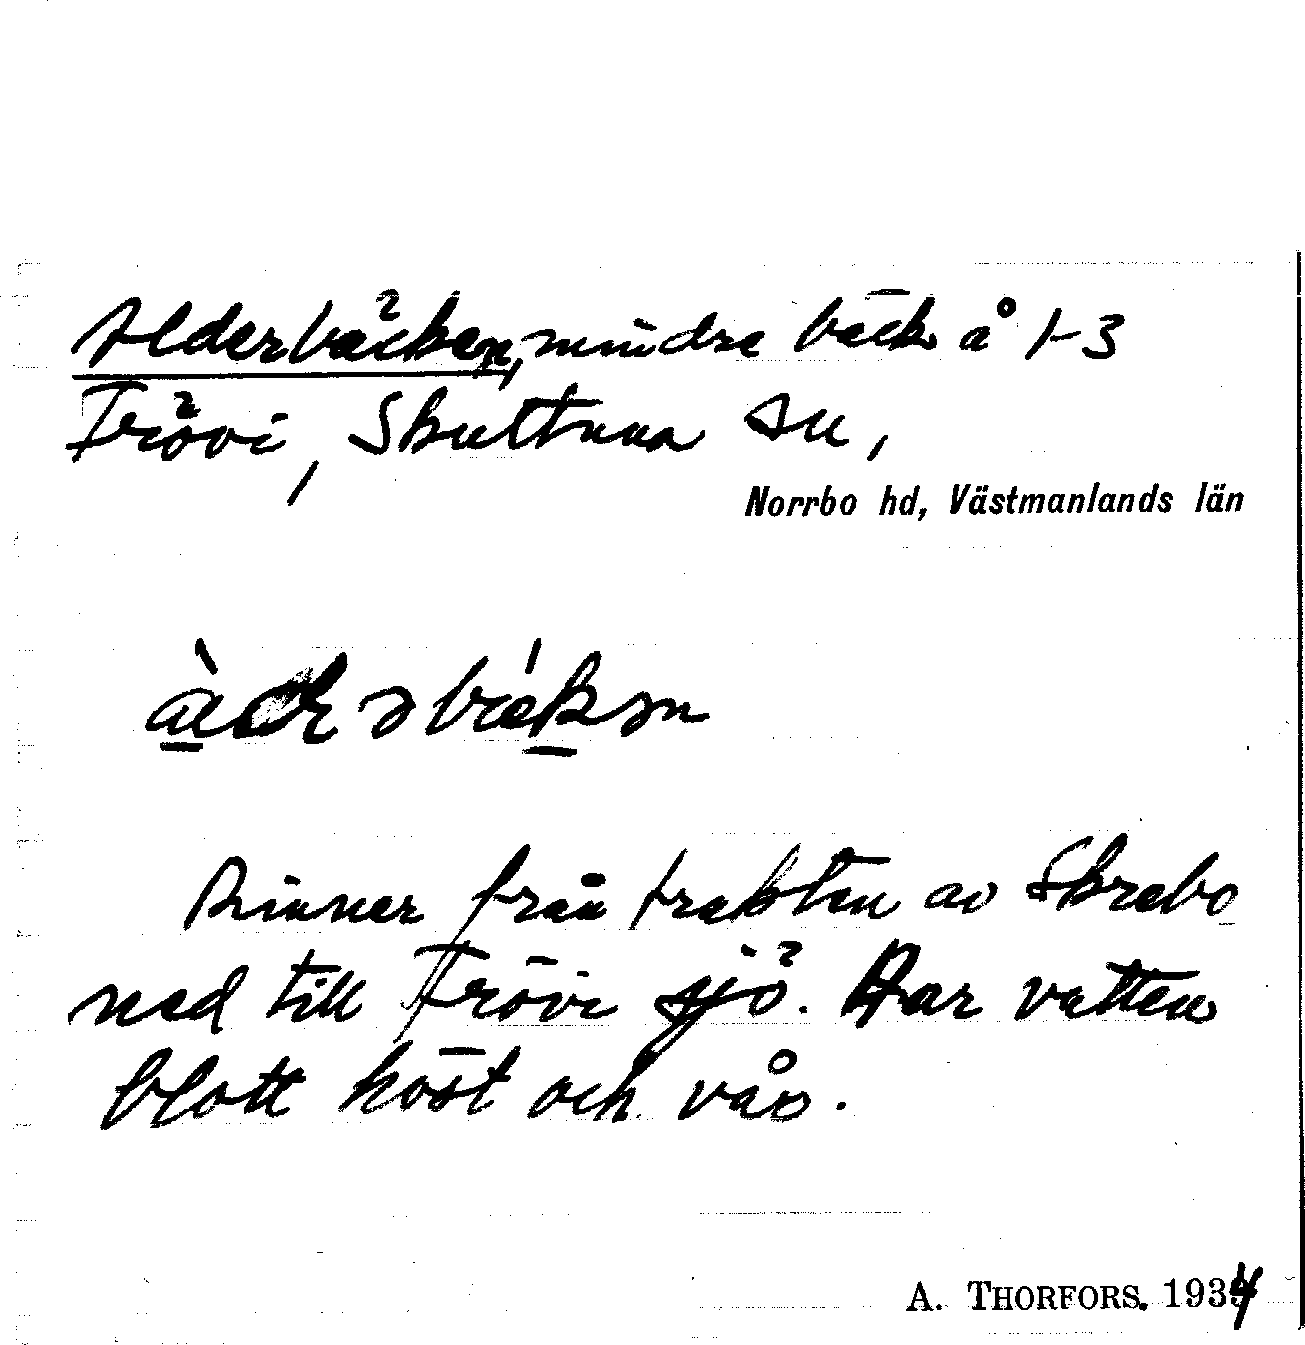 Alderbäcken, mindre bäck å 1-3
Frövi, Skultuna sn,
Norrbo hd, Västmanlands län
Rinner från trakten av Skrebo
ned till Frövi sjö. Har vatten
blott höst och vår.
A. THORFORS. 1934